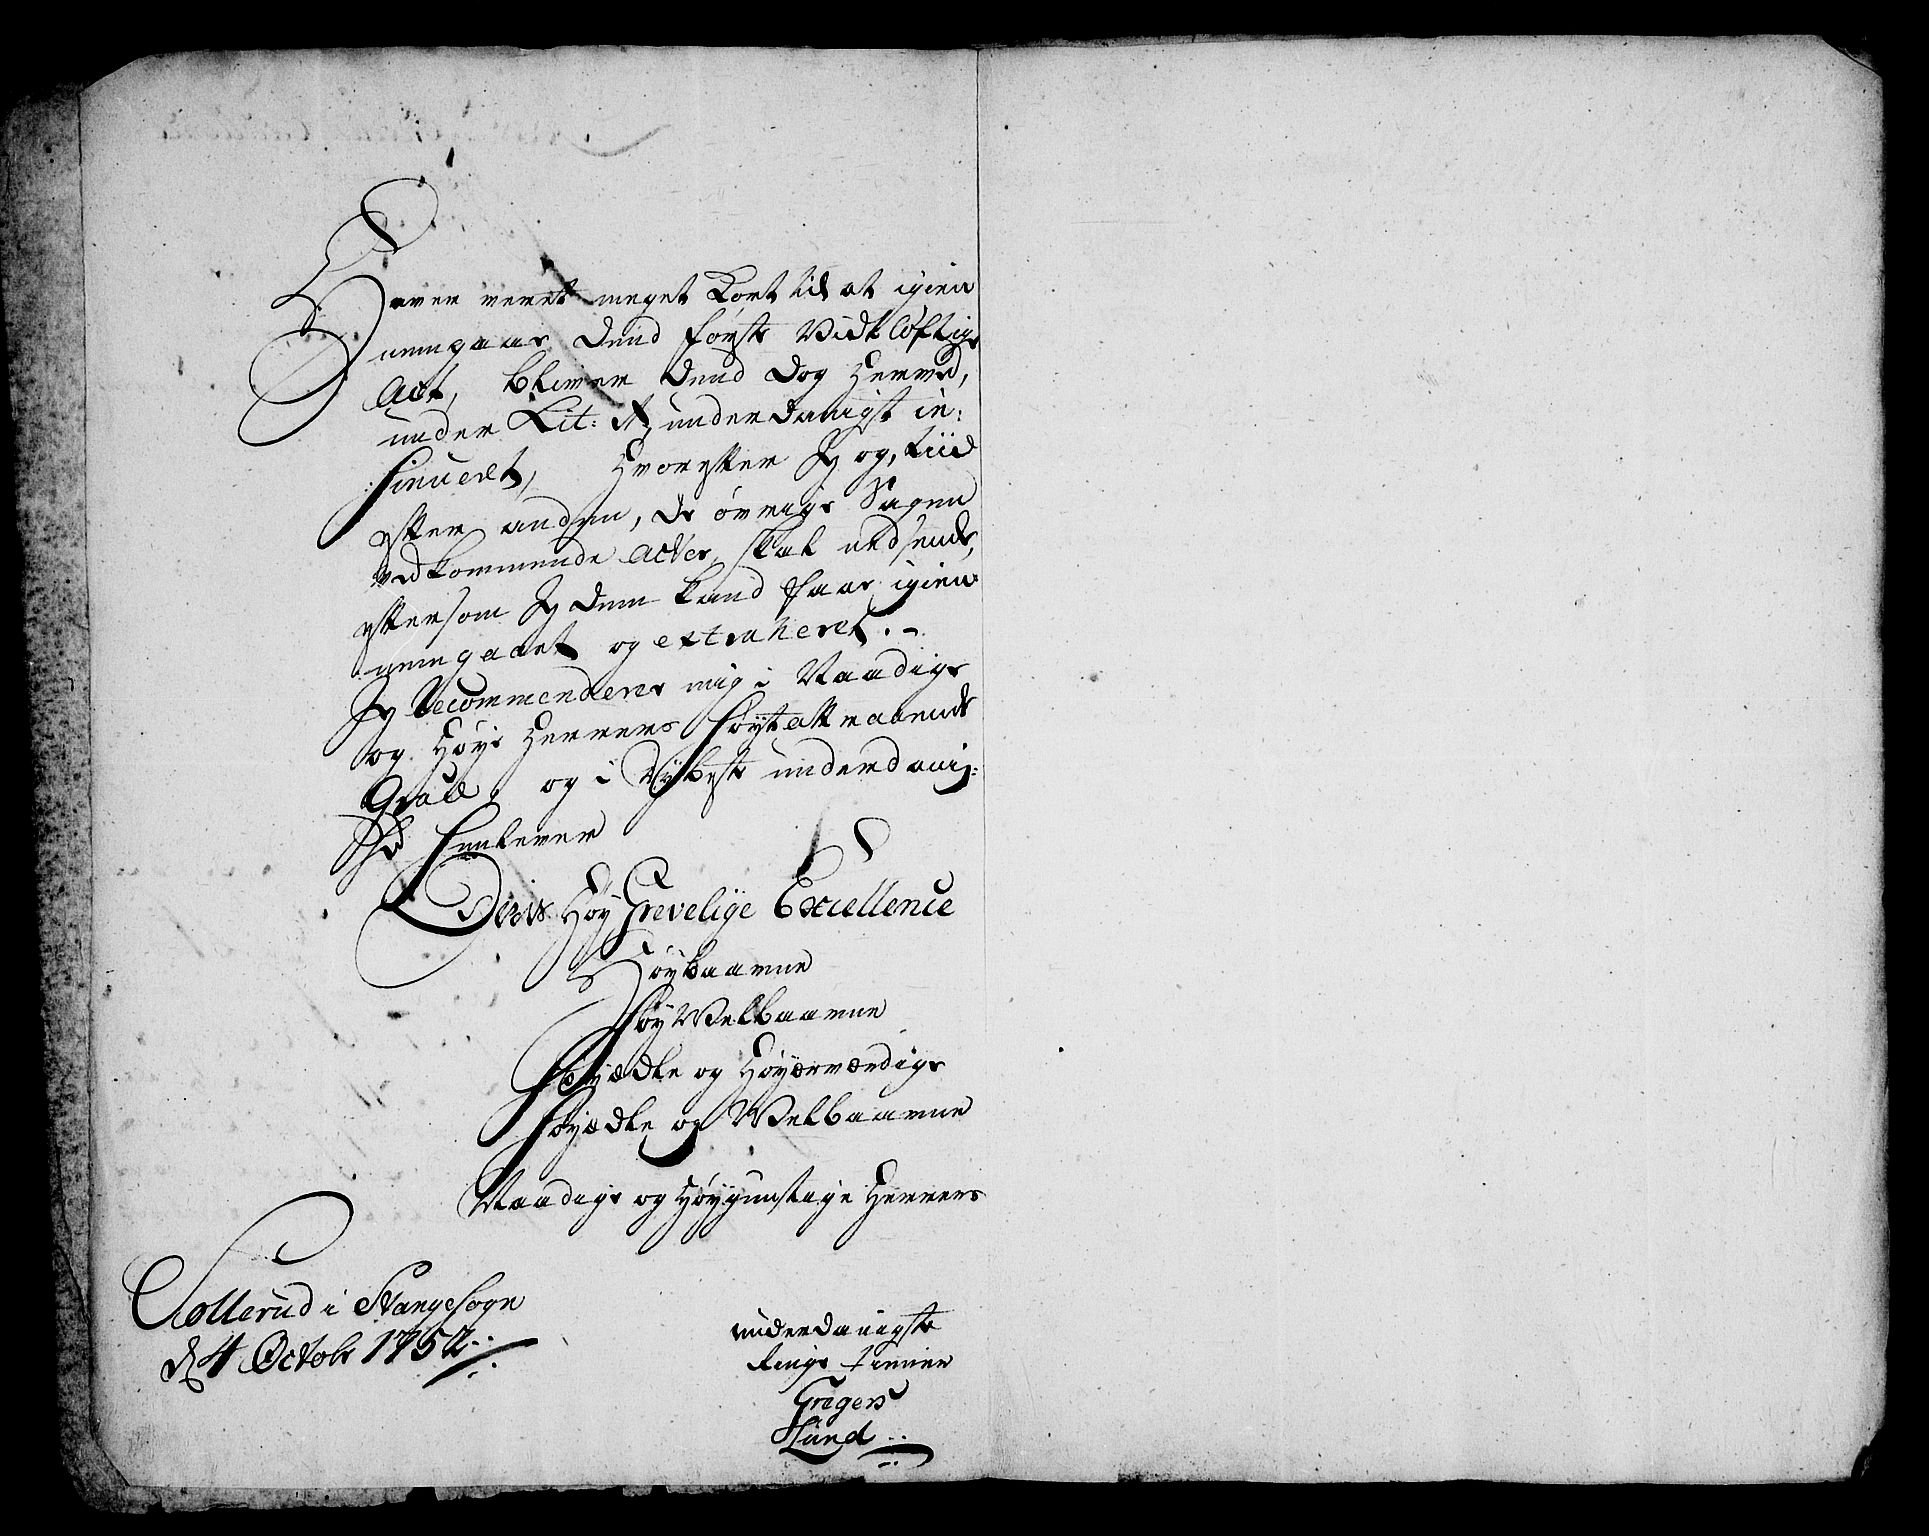 haver veret meget kort tid at igien
nemgaae dend første Vidtløftige
Act, bliver dend dog herved,
under Lit: A, underdanigst in:
sinuert, hvorefter Jeg og, tiid
efter anden, de øvrige Sagen
vedkommende Acter, skal nedsende,
eftersom Jeg dem kand faae igien
nemgaaet og extraheret. -
Jeg Recommenderer mig i Naadige
og høye Herrers høyt attraaende
Grace, og i dybeste underdanig:
hed henlever
Deris Høy Grevelige Excellence
Høybaarne
Høy Welbaarne
Høyædle og Høyærværdige
Høyædle og Welbaarne
Naadige og Høygunstige Herrers
Sollerud i Stange Sogn
d 4 Octobr 1752
underdanigste
ringe tienner
Gregers
Lund